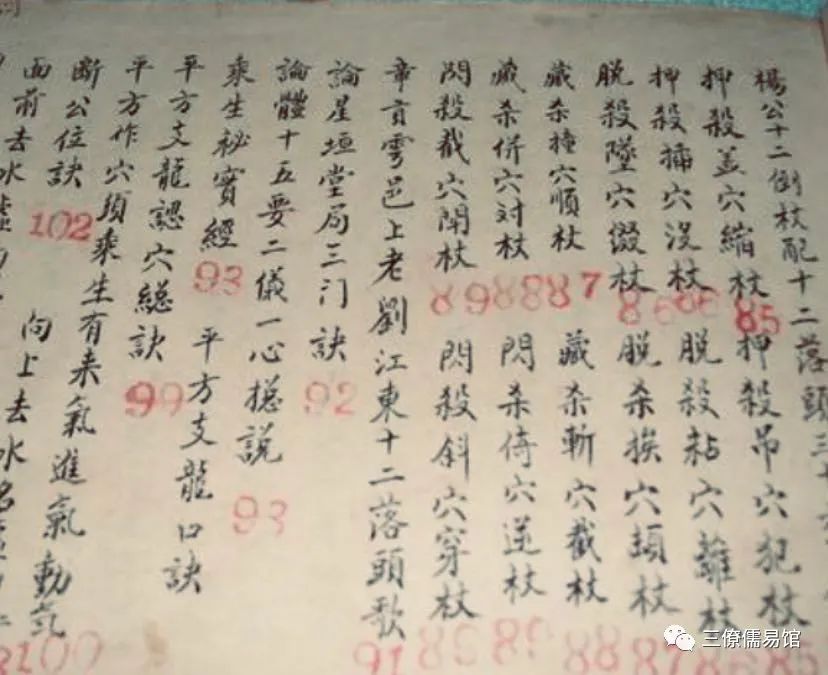 楊公十二倒杖配十二落頭三十
押殺盖穴縮杖 85 押殺吊穴犯杖 85
押殺插穴沒杖 86 脱殺粘穴離杖 86
脱殺墜穴綴杖 86 脱杀挨穴頓杖 87
藏杀撞穴順杖 87 藏杀斬穴截杖 88
藏杀併穴対杖 88 閃杀倚穴逆杖 89
閃殺截穴開杖 89 閃殺斜穴穿杖 89
章貢雩邑上老劉江東十二落頭歌 91
論星垣堂局三门訣 92
論體十五要二儀一心搃説 93
乘生祕寶經 93 平方支龍口訣
平方支龍認穴総訣 99
平方作穴須乘生有来氣進氣動氣 100
断公位訣 102 向上去水
面前去水
三僚儒易馆